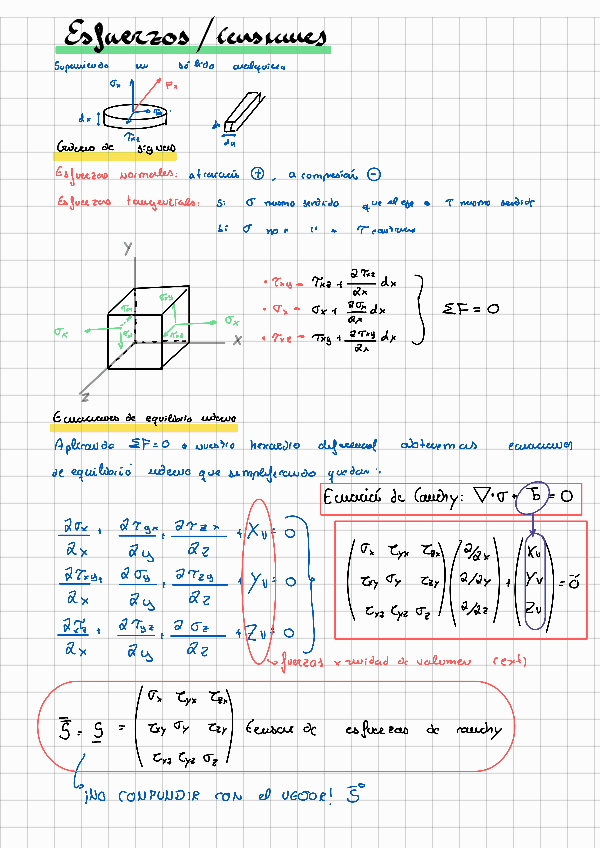 Esfuerzos / tensiones
Suponiendo un sólido cualquiera
σx Fx
dx
τxz
dy
Criterio de signos
Esfuerzos normales: a tracción ⊕, a compresión ⊖
Esfuerzos tangenciales: Si σ mismo sentido que el eje → τ mismo sentido
Si σ no " " → τ contrario
Y
σx σx
X
Z
• τxy → τxz + ∂τxz/∂x dx
• σx → σx + ∂σx/∂x dx
• τxz → τxy + ∂τxy/∂x dx
ΣF = 0
Ecuaciones de equilibrio interno
Aplicando ΣF=0 a nuestro hexaedro diferencial obtenemos ecuaciones
de equilibrio interno que simplificando quedan:
Ecuación de Cauchy: ∇·σ + b = 0
∂σx/∂x + ∂τyx/∂y + ∂τzx/∂z + Xv = 0
∂τxy/∂x + ∂σy/∂y + ∂τzy/∂z + Yv = 0
∂τxz/∂x + ∂τyz/∂y + ∂σz/∂z + Zv = 0
σx τyx τzx ∂/∂x Xv
τxy σy τzy ∂/∂y + Yv = 0
τxz τyz σz ∂/∂z Zv
fuerzas x unidad de volumen (ext)
σx τyx τzx
S = S = τxy σy τzy Tensor de esfuerzos de cauchy
τxz τyz σz
¡NO CONFUNDIR CON el VECTOR! S